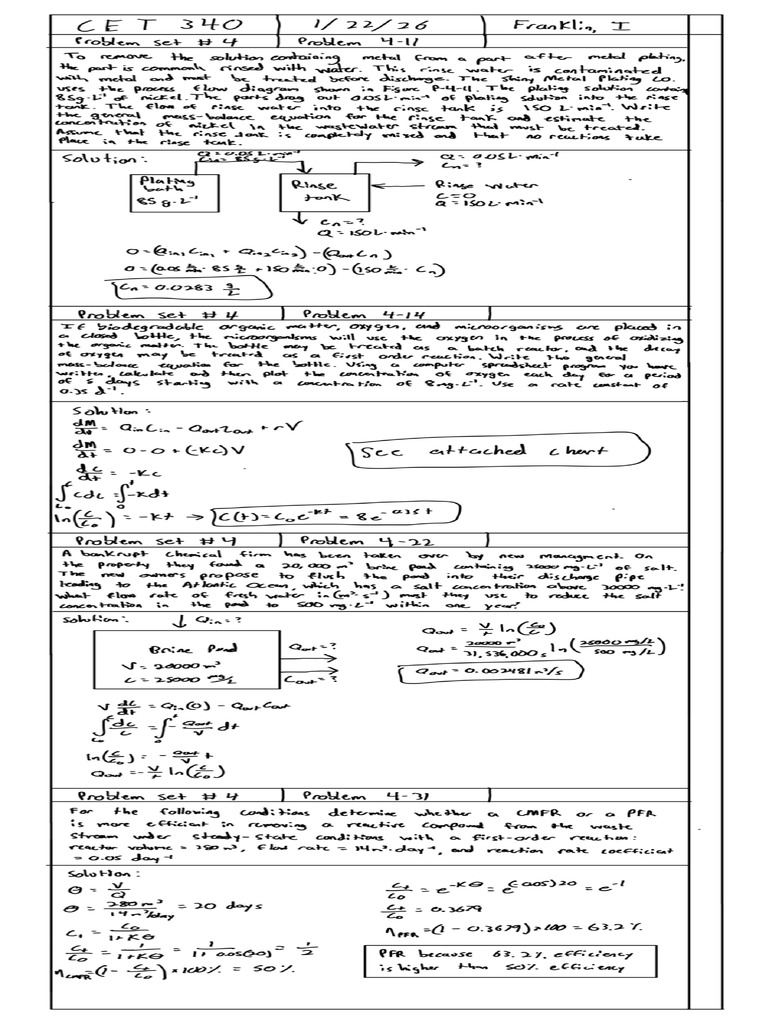 CET 340 1/22/26 Franklin, I
Problem set #4 Problem 4-11
To remove the solution containing metal from a part after metal plating,
the part is commonly rinsed with water. This rinse water is contaminated
with metal and must be treated before discharge. The Shiny Metal Plating CO.
uses the process flow diagram shown in Figure P-4-11. The plating solution contains
85g·L⁻¹ of nickel. The parts drag out 0.05L·min⁻¹ of plating solution into the rinse
tank. The flow of rinse water into the rinse tank is 150 L·min⁻¹. Write
the general mass-balance equation for the rinse tank and estimate the
concentration of nickel in the wastewater stream that must be treated.
Assume that the rinse tank is completely mixed and that no reactions take
place in the rinse tank.
Solution:
Q=0.05L·min⁻¹
Cin=85g·L⁻¹
Q=0.05L·min⁻¹
Cn=?
Plating
bath
85g·L⁻¹
Rinse
tank
Rinse water
C=0
Q=150L·min⁻¹
Cn=?
Q=150L·min⁻¹
0=(Qin1Cin1 + Qin2Cin2)-(QoutCn)
0=(0.05 L/min · 85 g/L + 150 L/min · 0)-(150 L/min · Cn)
Cn=0.0283 g/L
Problem set #4 Problem 4-14
If biodegradable organic matter, oxygen, and microorganisms are placed in
a closed bottle, the microorganisms will use the oxygen in the process of oxidizing
the organic matter. The bottle may be treated as a batch reactor, and the decay
of oxygen may be treated as a first order reaction. Write the general
mass-balance equation for the bottle. Using a computer spreadsheet program you have
written, calculate and then plot the concentration of oxygen each day for a period
of 5 days starting with a concentration of 8mg·L⁻¹. Use a rate constant of
0.35 d⁻¹.
Solution:
dM/dt = QinCin - QoutCout + rV
dM/dt = 0-0+(-Kc)V
See attached chart
dc/dt = -Kc
∫cdc=∫-kdt
ln(C/C₀)=-Kt → C(t)=C₀e^-Kt = 8e^-0.35t
Problem set #4 Problem 4-22
A bankrupt chemical firm has been taken over by new managment. On
the property they found a 20,000 m³ brine pond containing 25000 mg·L⁻¹ of salt.
The new owners propose to flush the pond into their discharge pipe
leading to the Atlantic Ocean, which has a salt concentration above 30000 mg·L⁻¹
what flow rate of fresh water in (m³·s⁻¹) must they use to reduce the salt
concentration in the pond to 500 mg·L⁻¹ within one year?
Solution: Qin=?
Brine Pond
V=20000m³
C=25000 mg/L
Qout=?
Cout=?
Qout = V/t ln(C₀/C)
Qout= 20000m³/31,536,000s ln(25000 mg/L / 500 mg/L)
Qout=0.002481m³/s
V dc/dt = Qin(0) - QoutCout
∫dc/c = ∫-Qout/V dt
ln(C/C₀)=-Qout/V t
Qout=-V/t ln(C/C₀)
Problem set #4 Problem 4-31
For the following conditions determine whether a CMFR or a PFR
is more efficient in removing a reactive compound from the waste
stream under steady-state conditions with a first-order reaction:
reactor volume = 280m³, flow rate = 14m³·day⁻¹, and reaction rate coefficient
= 0.05 day⁻¹
Solution:
θ = V/Q
θ = 280 m³ / 14 m³/day = 20 days
Ct = C₀/1+Kθ
Ct/C₀ = 1/1+Kθ = 1/1+0.05(20) = 1/2
ηCMFR=(1 - Ct/C₀)×100% = 50%
Ct/C₀ = e^-Kθ = e^(-0.05)20 = e⁻¹
Ct/C₀ = 0.3679
ηPFR=(1-0.3679)×100=63.2%
PFR because 63.2% efficiency
is higher than 50% efficiency